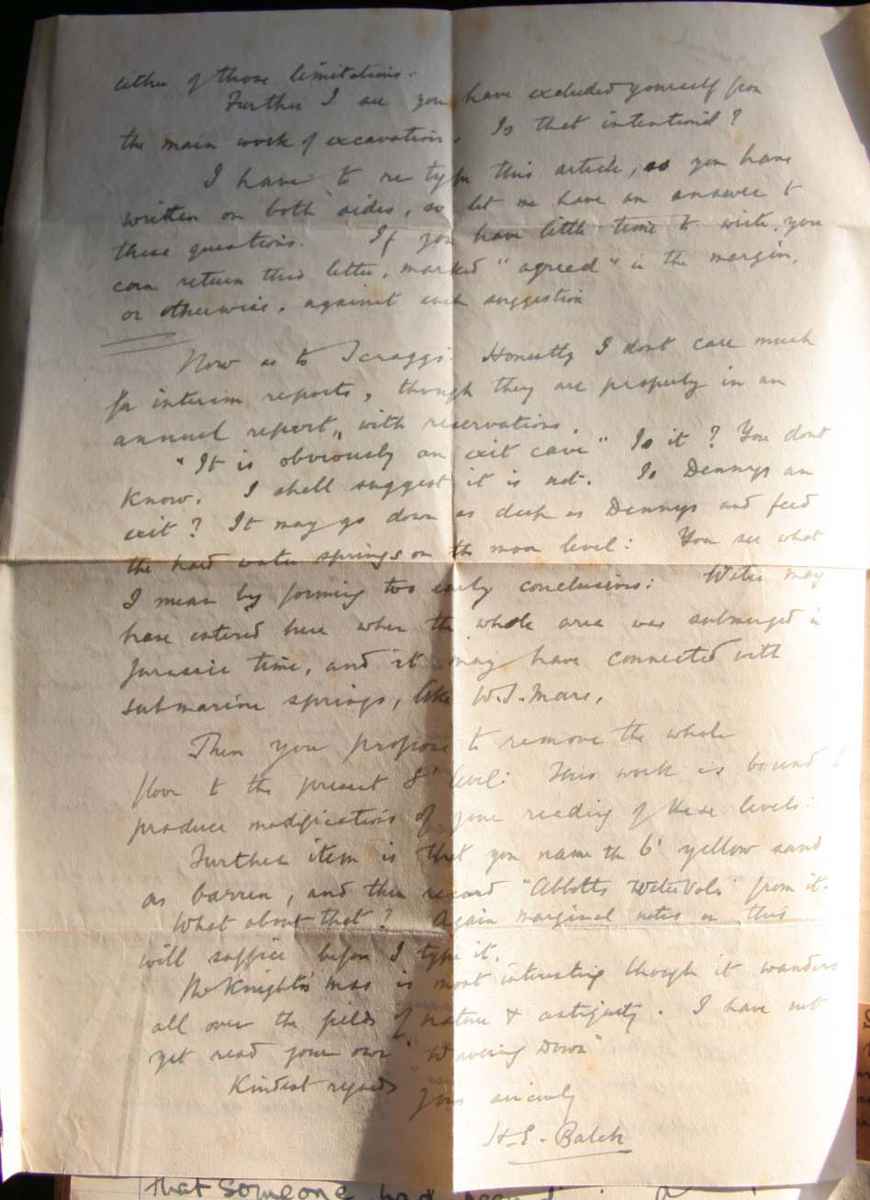 either of those limitations.
Further I see you have excluded yourself from
the main work of excavation. Is that intentional?
I have to re type this article, as you have
written on both sides, so let me have an answer to
these questions. If you have little time to write, you
can return this letter, marked "agreed" in the margin,
or otherwise, against each suggestion
Now as to Scraggs. Honestly I dont care much
for interim reports, though they are properly in an
annual report, with reservations.
"It is obviously an exit cave" Is it? You dont
know. I shall suggest it is not. Is Dennys an
exit? It may go down as deep as Dennys and feed
the hard water springs on the moor level: You see what
I mean by forming too early conclusions: Water may
have entered here when the whole area was submerged in
Jurassic time, and it may have connected with
submarine springs, like W.S. Mare.
Then you propose to remove the whole
floor to the present 8' level: This work is bound to
produce modifications of your reading of these levels:
Further item is that you name the 6' yellow sand
as barren, and then record "Abbotts Water Vole" from it.
What about that? Again marginal notes on this
will suffice before I type it.
Mr Knight's mss is most interesting though it wanders
all over the fields of nature & antiquity. I have not
yet read your own "Wavering Down"
Kindest regards
yours sincerely
H.E. Balch
that someone had been